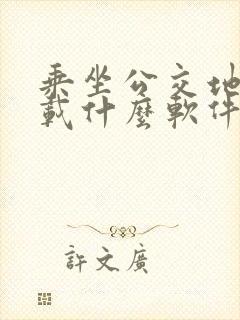 乘坐公交地
載什麼軟件
許文廣